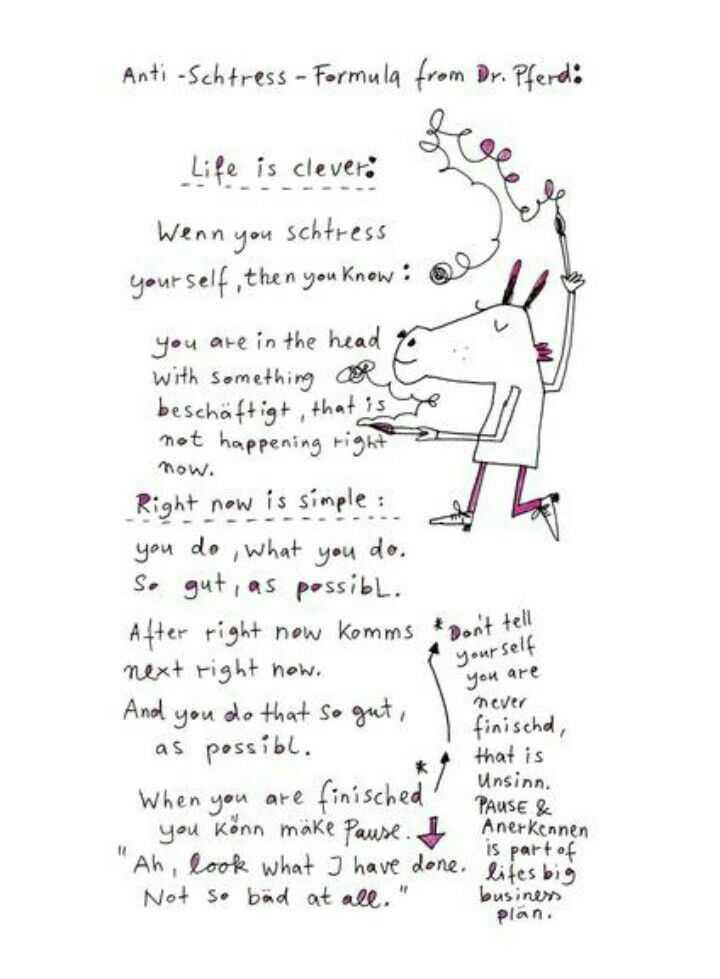 Anti-Schtress-Formula from Dr. Pferd:
Life is clever:
Wenn you schtress
yourself, then you know:
you are in the head
with something
beschäftigt, that is
not happening right
now.
Right now is simple:
you do, what you do.
So gut, as possibL.
After right now komms
next right now.
And you do that so gut,
as possibl.
*
When you are finisched
you könn mäke Pause.
"Ah, look what I have done.
Not so bäd at all."
* Don't tell
yourself
you are
never
finischd,
that is
Unsinn.
PAUSE &
Anerkennen
is part of
lifes big
business
plän.